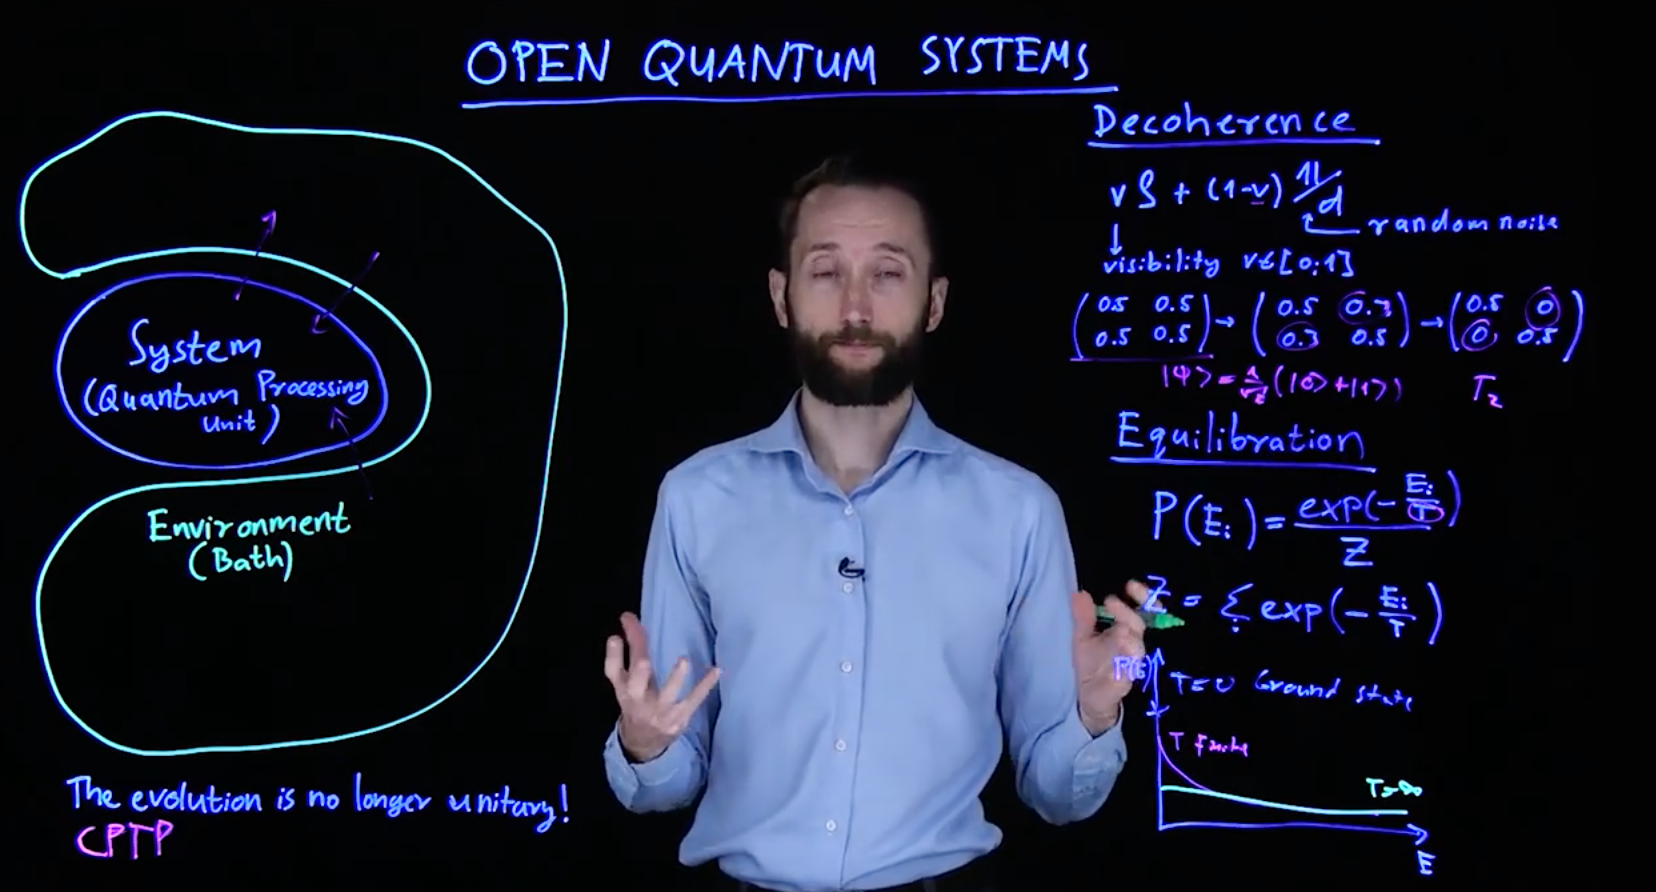 OPEN QUANTUM SYSTEMS
System
(Quantum Processing
Unit)
Environment
(Bath)
The evolution is no longer unitary!
CPTP
Decoherence
vρ + (1-v) 𝟙/d
random noise
visibility v∈[0;1]
(0.5 0.5 / 0.5 0.5) → (0.5 0.3 / 0.3 0.5) → (0.5 0 / 0 0.5)
|ψ> = 1/√2 (|0>+|1>)
T₂
Equilibration
P(Eᵢ) = exp(-Eᵢ/T) / Z
Z = Σᵢ exp(-Eᵢ/T)
P(E)
T=0 Ground state
T finite
T=∞
E